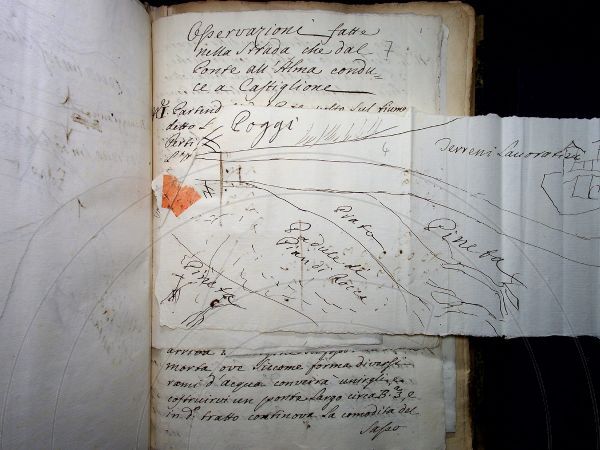 Osservazioni fatte
nella Strada che dal 7
Ponte all'Alma condu-
ce a Castiglione
Poggi
4
Terreni Lavorativi
Prato
Pineta
Padule di
Pian di Rocca
Pineta
arriva
morta ove siccome forma diversi
rami d'acqua converrà unirgli, e
costruirvi un ponte largo circa B.a 3, e
in do tratto continova la comodità del
Sasso